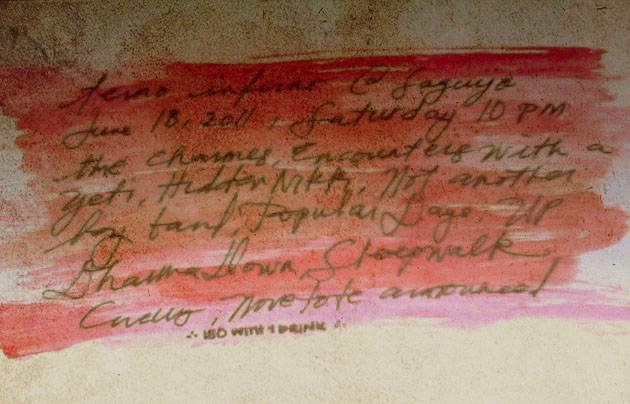 terno inferno @ Saguijo
June 18, 2011, Saturday 10 PM
the Charmes, Encounters with a
Yeti, Hidden Nikki, Not another
boy band, Popular Days, Up
Dharma Down, Sleepwalk
Circus, more to be announced
150 WITH 1 DRINK